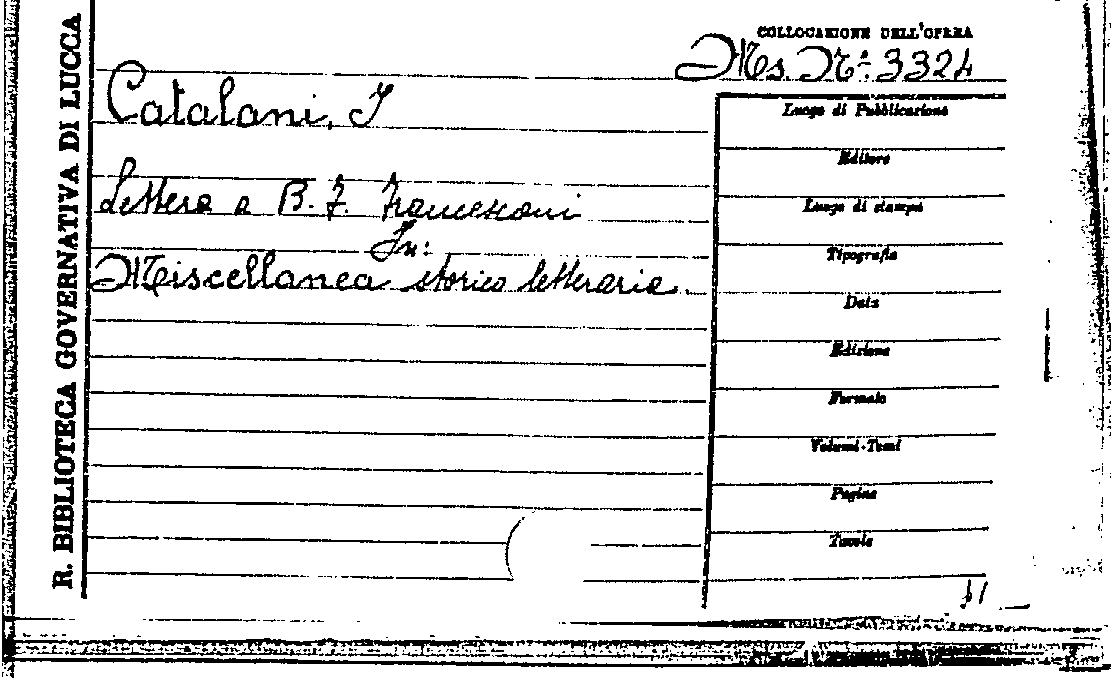 R. BIBLIOTECA GOVERNATIVA DI LUCCA
COLLOCAZIONE DELL'OPERA
Ms. Nº 3324
Catalani, I
Lettera a B. F. Francesconi
In:
Miscellanea storico letteraria.
Luogo di Pubblicazione
Editore
Luogo di stampa
Tipografia
Data
Edizione
Formato
Volumi-Tomi
Pagine
Tavole